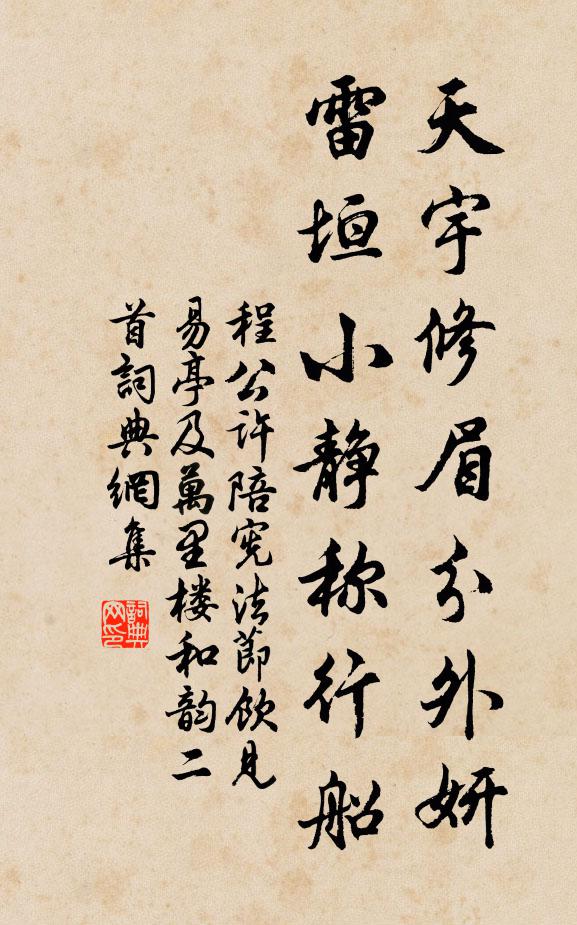 天宇修眉分外妍
雷垣小静称行船
程公许陪宪法节饮见
易亭及萬里楼和韵二
首詞典網集
詞典网印